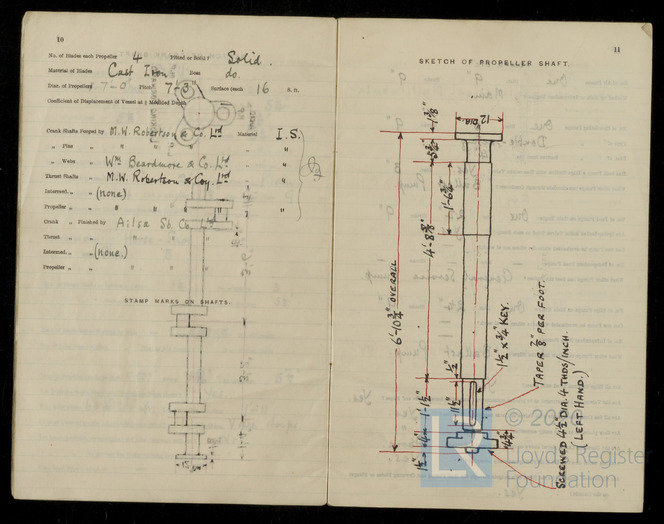 10
No. of Blades each Propeller 4 Fitted or Solid? Solid.
Material of Blades Cast Iron Boss do.
Diam. of Propellers 7-0" Pitch 7-3" Surface (each 16 S. ft.
Coefficient of Displacement of Vessel at ⅘ Moulded Depth
Crank Shafts Forged by M.W. Robertson & Co. Ltd Material I.S.
„ Pins „ " " " "
„ Webs „ Wm Beardmore & Co. Ltd "
Thrust Shafts „ M.W. Robertson & Coy. Ltd "
Intermed. „ „ (none)
Propeller „ „ " " " "
Crank „ Finished by Ailsa St. Co. Ltd
Thrust „ „ " " "
Intermed. „ „ (none.)
Propeller „ „ " " "
STAMP MARKS ON SHAFTS.
11
SKETCH OF PROPELLER SHAFT.
12" DIA.
1'-6¾"
4'-8⅝"
6'-10¾" OVERALL
1½" x ¾" KEY.
TAPER ⅞" PER FOOT.
½"
1'-1½"
11½"
4¾"
SCREWED 4½" DIA. 4 THDS/INCH.
(LEFT HAND.)
Lloyd's Register
Foundation